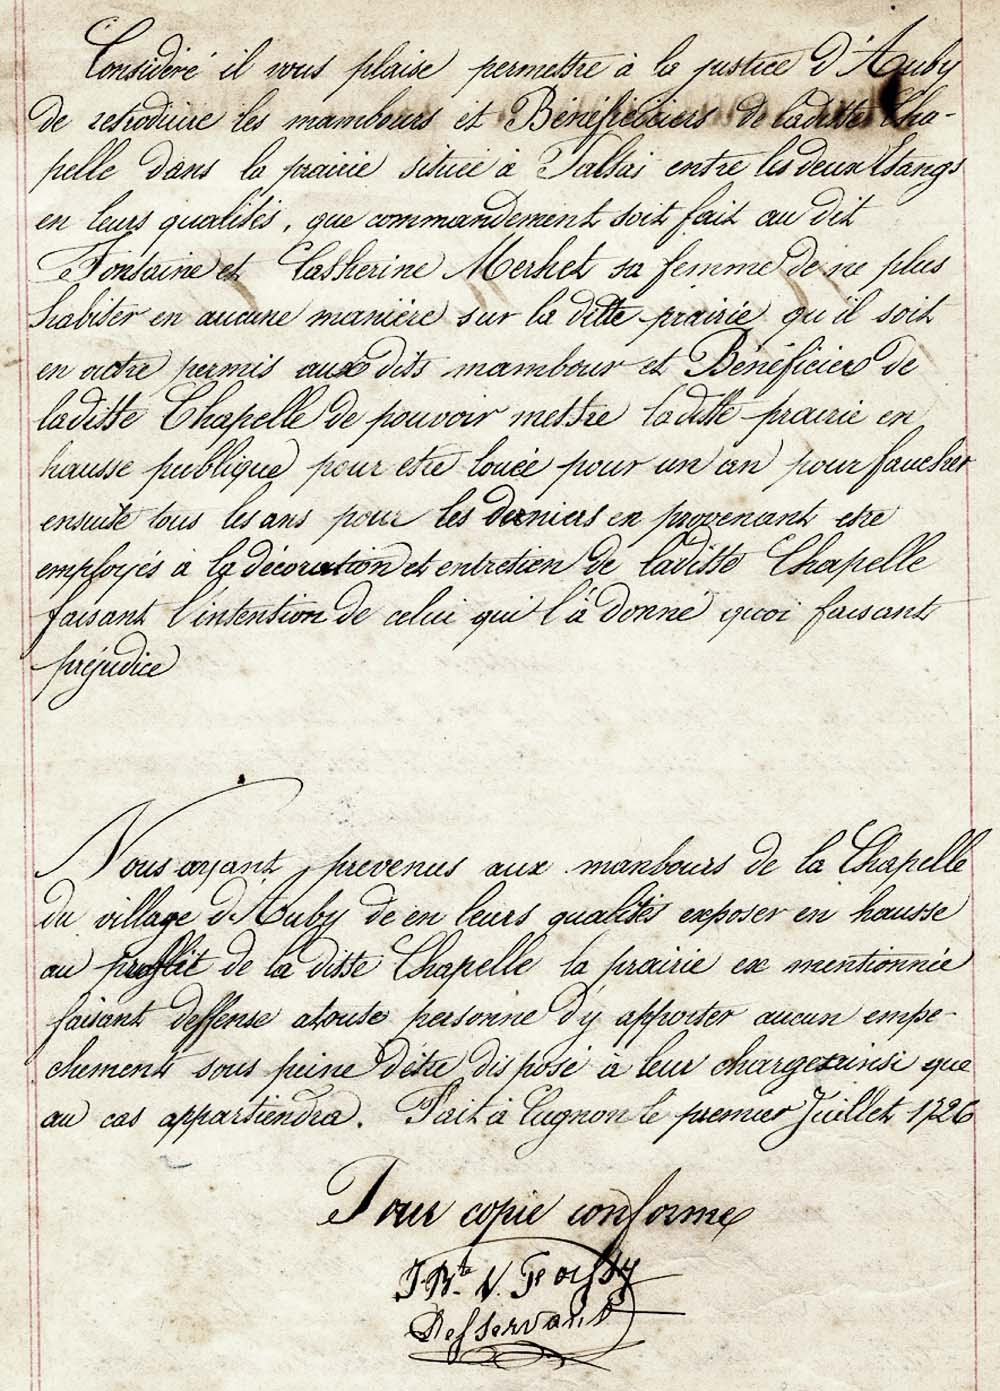 Considéré il vous plaise permettre à la justice d'Auby
de retrodiure les mambours et Bénéficiers de laditte Cha-
pelle dans la prairie située à entre les deux Etangs
en leurs qualités, que commandement soit fait au dit
Fontaine et Catherine Merhet sa femme de ne plus
habiter en aucune manière sur la ditte prairie qu'il soit
en outre permis aux dits mambour et Bénéficiers de
laditte Chapelle de pouvoir mettre laditte prairie en
hausse publique pour etre louée pour un an pour faucher
ensuite tous les ans pour les derniers en provenant etre
employés à la décoration et entretien de laditte Chapelle
faisant l'intention de celui qui l'à donné quoi faisant
préjudice
Nous ayant prevenus aux manbours de la Chapelle
du village d'Auby de en leurs qualités exposer en hausse
au proffit de la ditte Chapelle la prairie ex mentionnée
faisant deffense atoute personne d'y apporter aucun empe-
chement sous peine d'être disposé à leur charge ainsi que
au cas appartiendra. Fait à Cugnon le premier Juillet 1726
Pour copie conforme
J. Bte. N.
Desservant